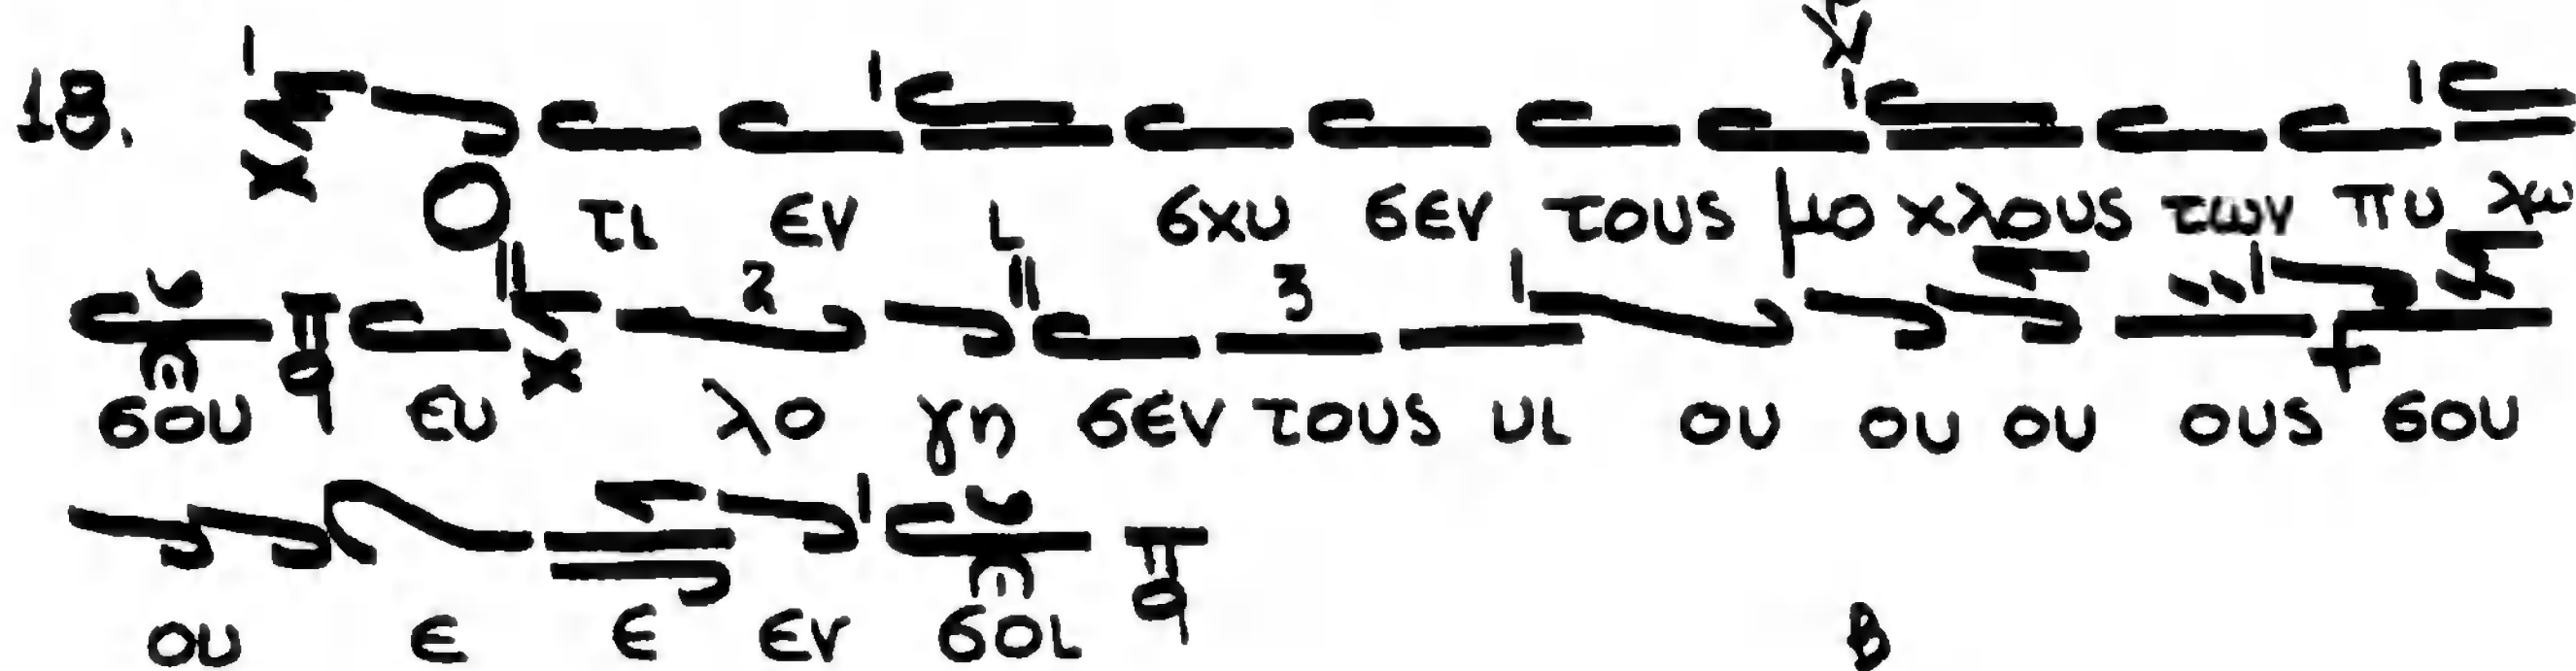 18. Ο τι εν ι σχυ σεν τους μο χλους των πυ λω
σου π̅ q ευ λο γη σεν τους υι ου ου ου ους σου
ου ε ε εν σοι π̅ q Β